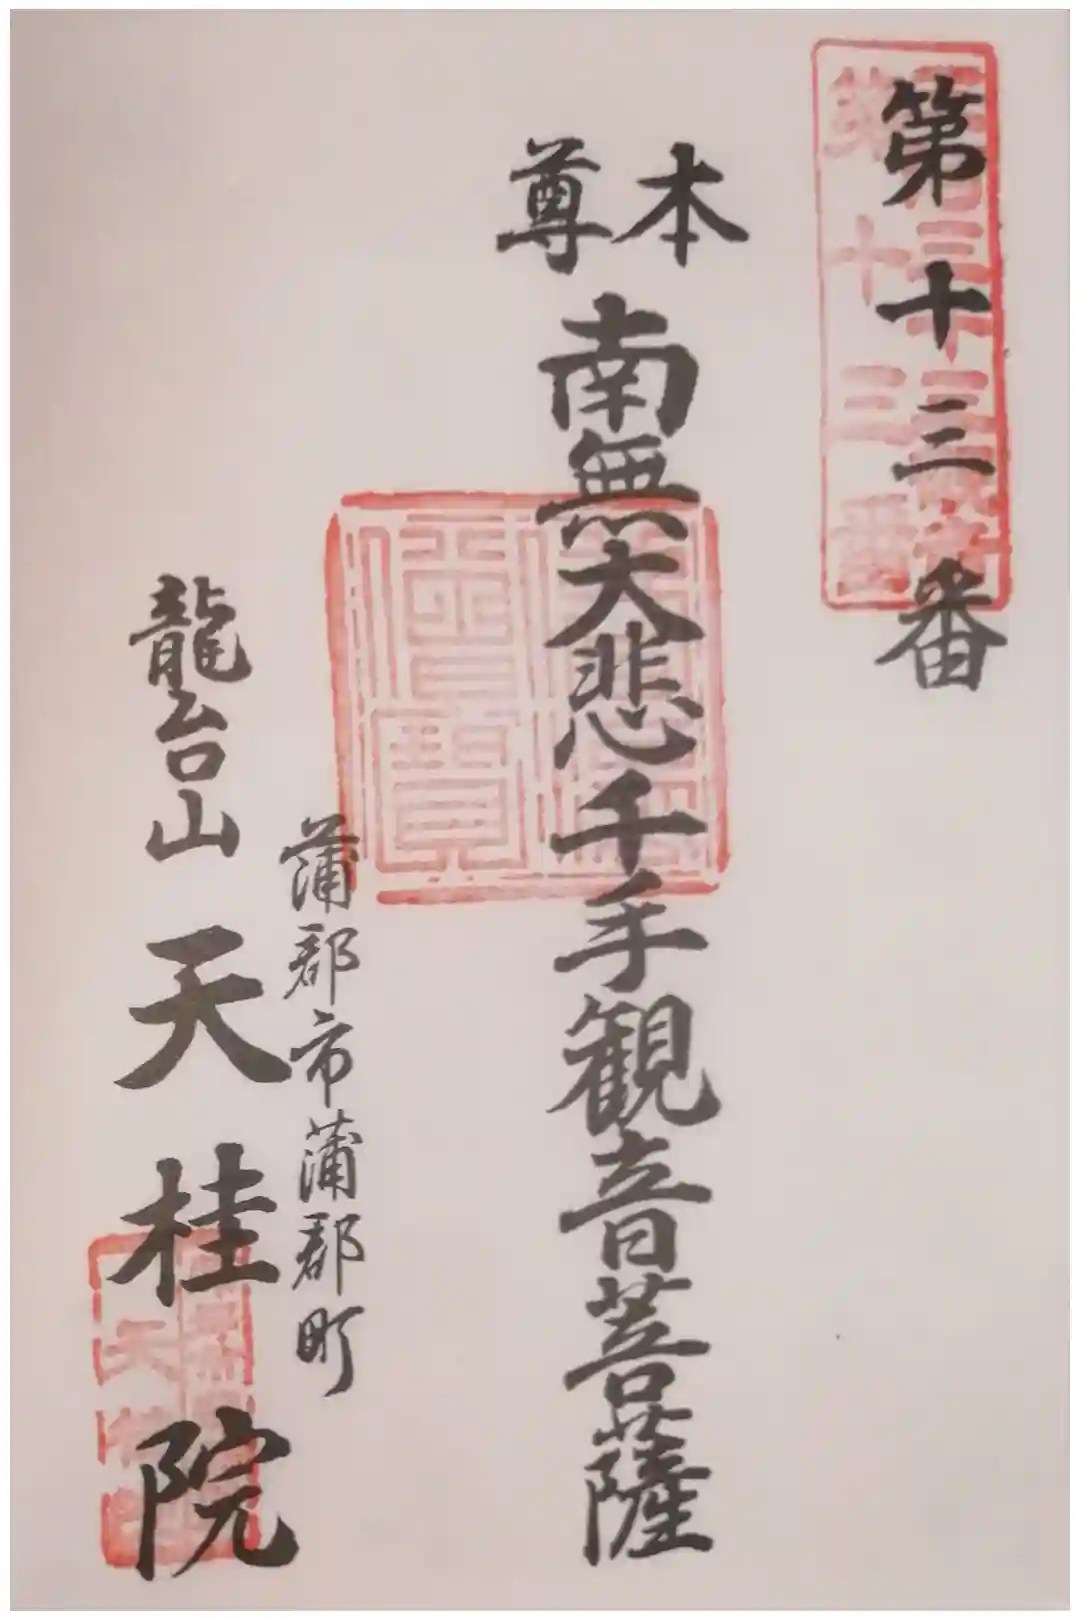 第十三番
第十三番
本尊
南無大悲千手観音菩薩
蒲郡市蒲郡町
龍台山 天桂院
天桂院